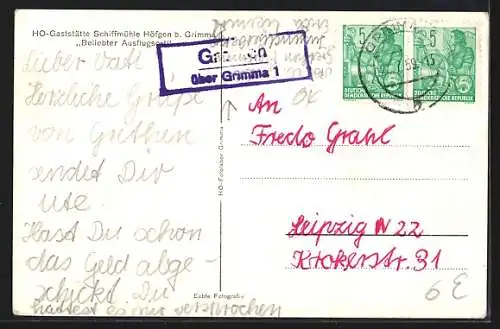 HO-Gaststätte Schiffmühle Höfgen b. Grimma
„Beliebter Ausflugsort"
Lieber Vati!
Herzliche Grüße
von Grethen
sendet Dir
Ute.
Hast Du schon
das Geld abge-
schickt. Du
hattest es mir versprochen
über Grimma 1
HO-Fotolabor Grimma
Echte Fotografie
5 5
DEUTSCHE
DEMOKRATISCHE REPUBLIK
DEUTSCHE
DEMOKRATISCHE REPUBLIK
An
Fredo Grahl
Leipzig N 22
Krokerstr. 31
6 E